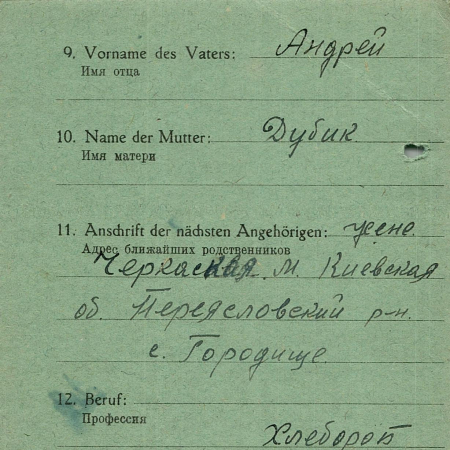 9. Vorname des Vaters: Андрей
Имя отца
10. Name der Mutter: Дубик
Имя матери
11. Anschrift der nächsten Angehörigen: жене
Адрес ближайших родственников
Черкаская М. Киевская
об. Переясловский р-н.
с. Городище
12. Beruf:
Профессия
Хлебороб